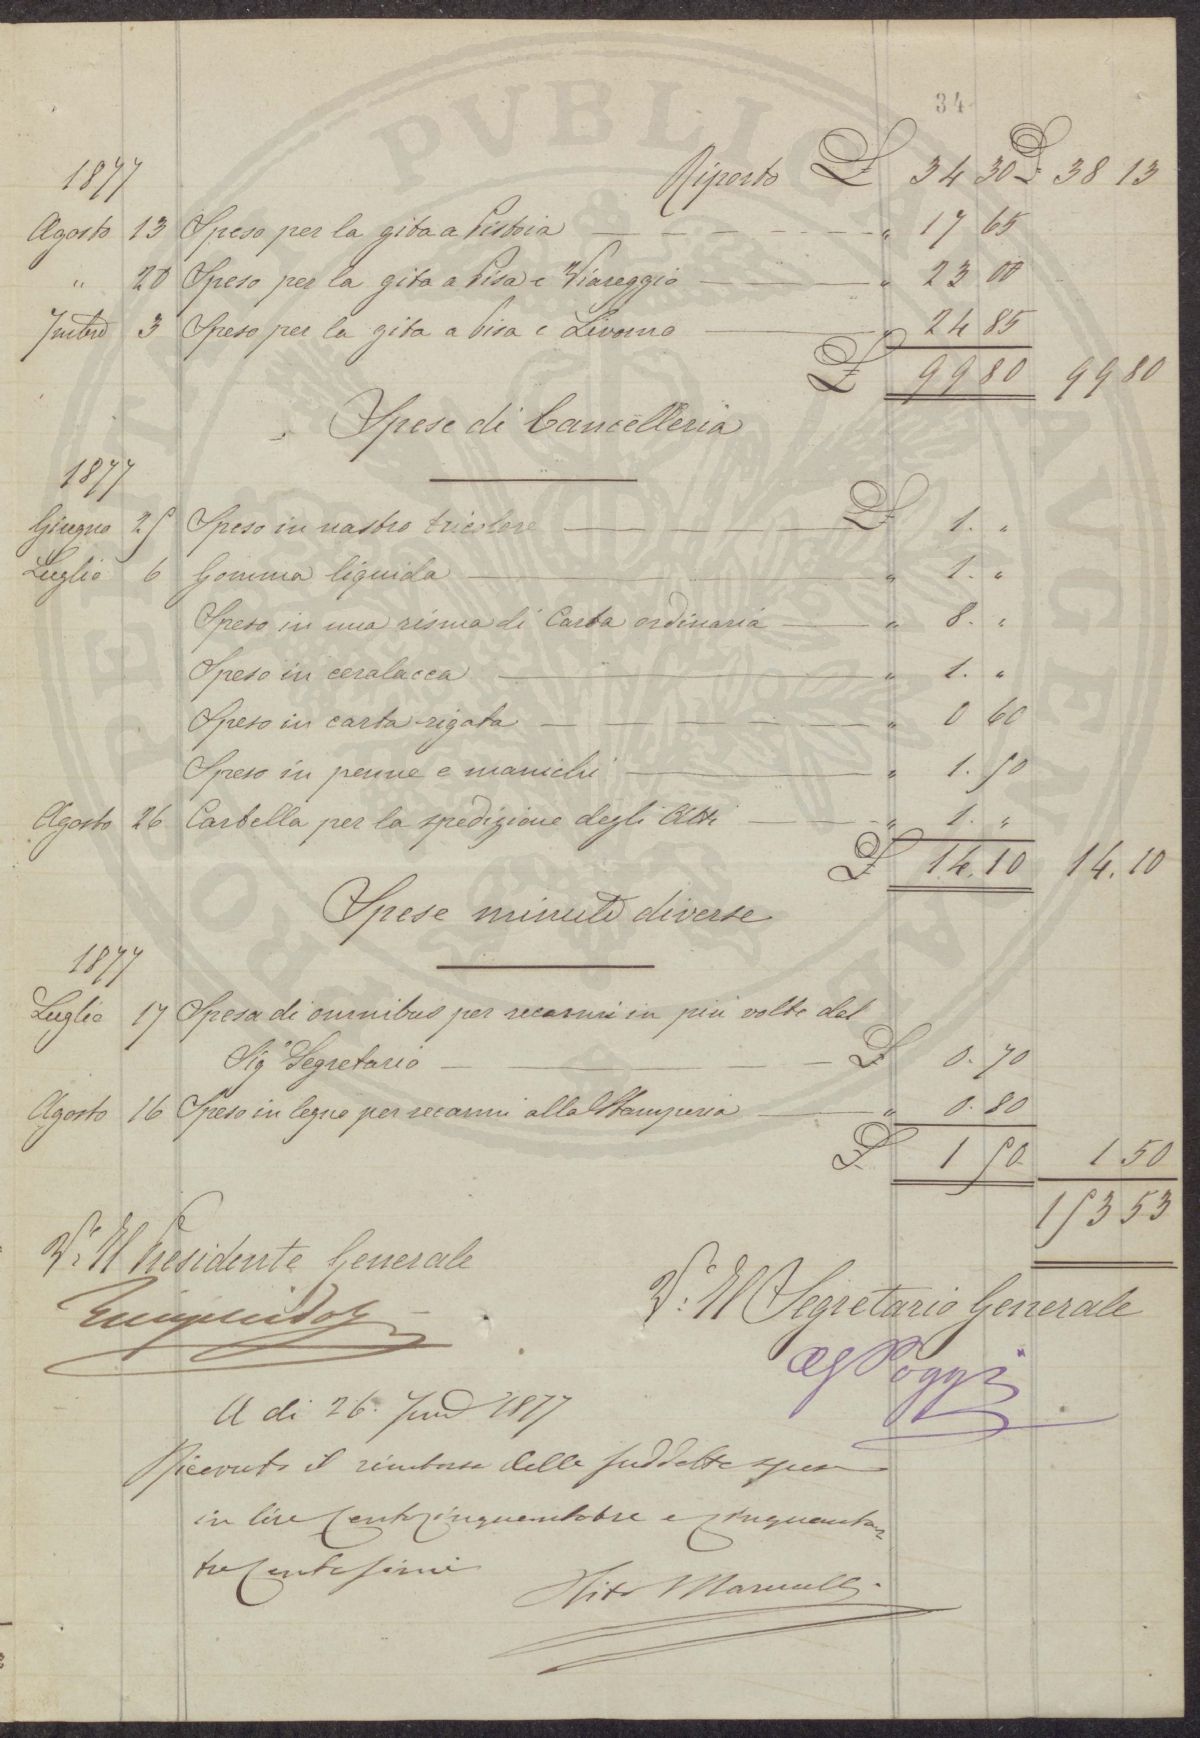 34
1877 Riporto £ 34 30 £ 38 13
Agosto 13 Speso per la gita a Pistoia " 17 65
" 20 Speso per la gita a Pisa e Viareggio " 23 00
7mbre 3 Speso per la gita a Pisa e Livorno " 24 85
£ 99 80 99 80
Spese di Cancelleria
1877
Giugno 25 Speso in nastro tricolore £ 1. "
Luglio 6 Gomma liquida " 1. "
Speso in una risma di Carta ordinaria " 8. "
Speso in ceralacca " 1. "
Speso in carta rigata " 0 60
Speso in penne e manichi " 1. 50
Agosto 26 Cartella per la spedizione degli Atti " 1. "
£ 14. 10 14. 10
Spese minute diverse
1877
Luglio 17 Spesa di omnibus per recarmi in più volte dal
Sigr Segretario £ 0. 70
Agosto 16 Speso in legno per recarmi alla Stamperia " 0. 80
£ 1 50 1 50
153 53
V.° Il Presidente Generale
V.° Il Segretario Generale
Poggi
A di 26. 1877
Ricevuto il rimborso delle suddette spese
in lire Centocinquantatre e cinquanta
tre Centesimi
Tito Marucelli
PVBLICAE